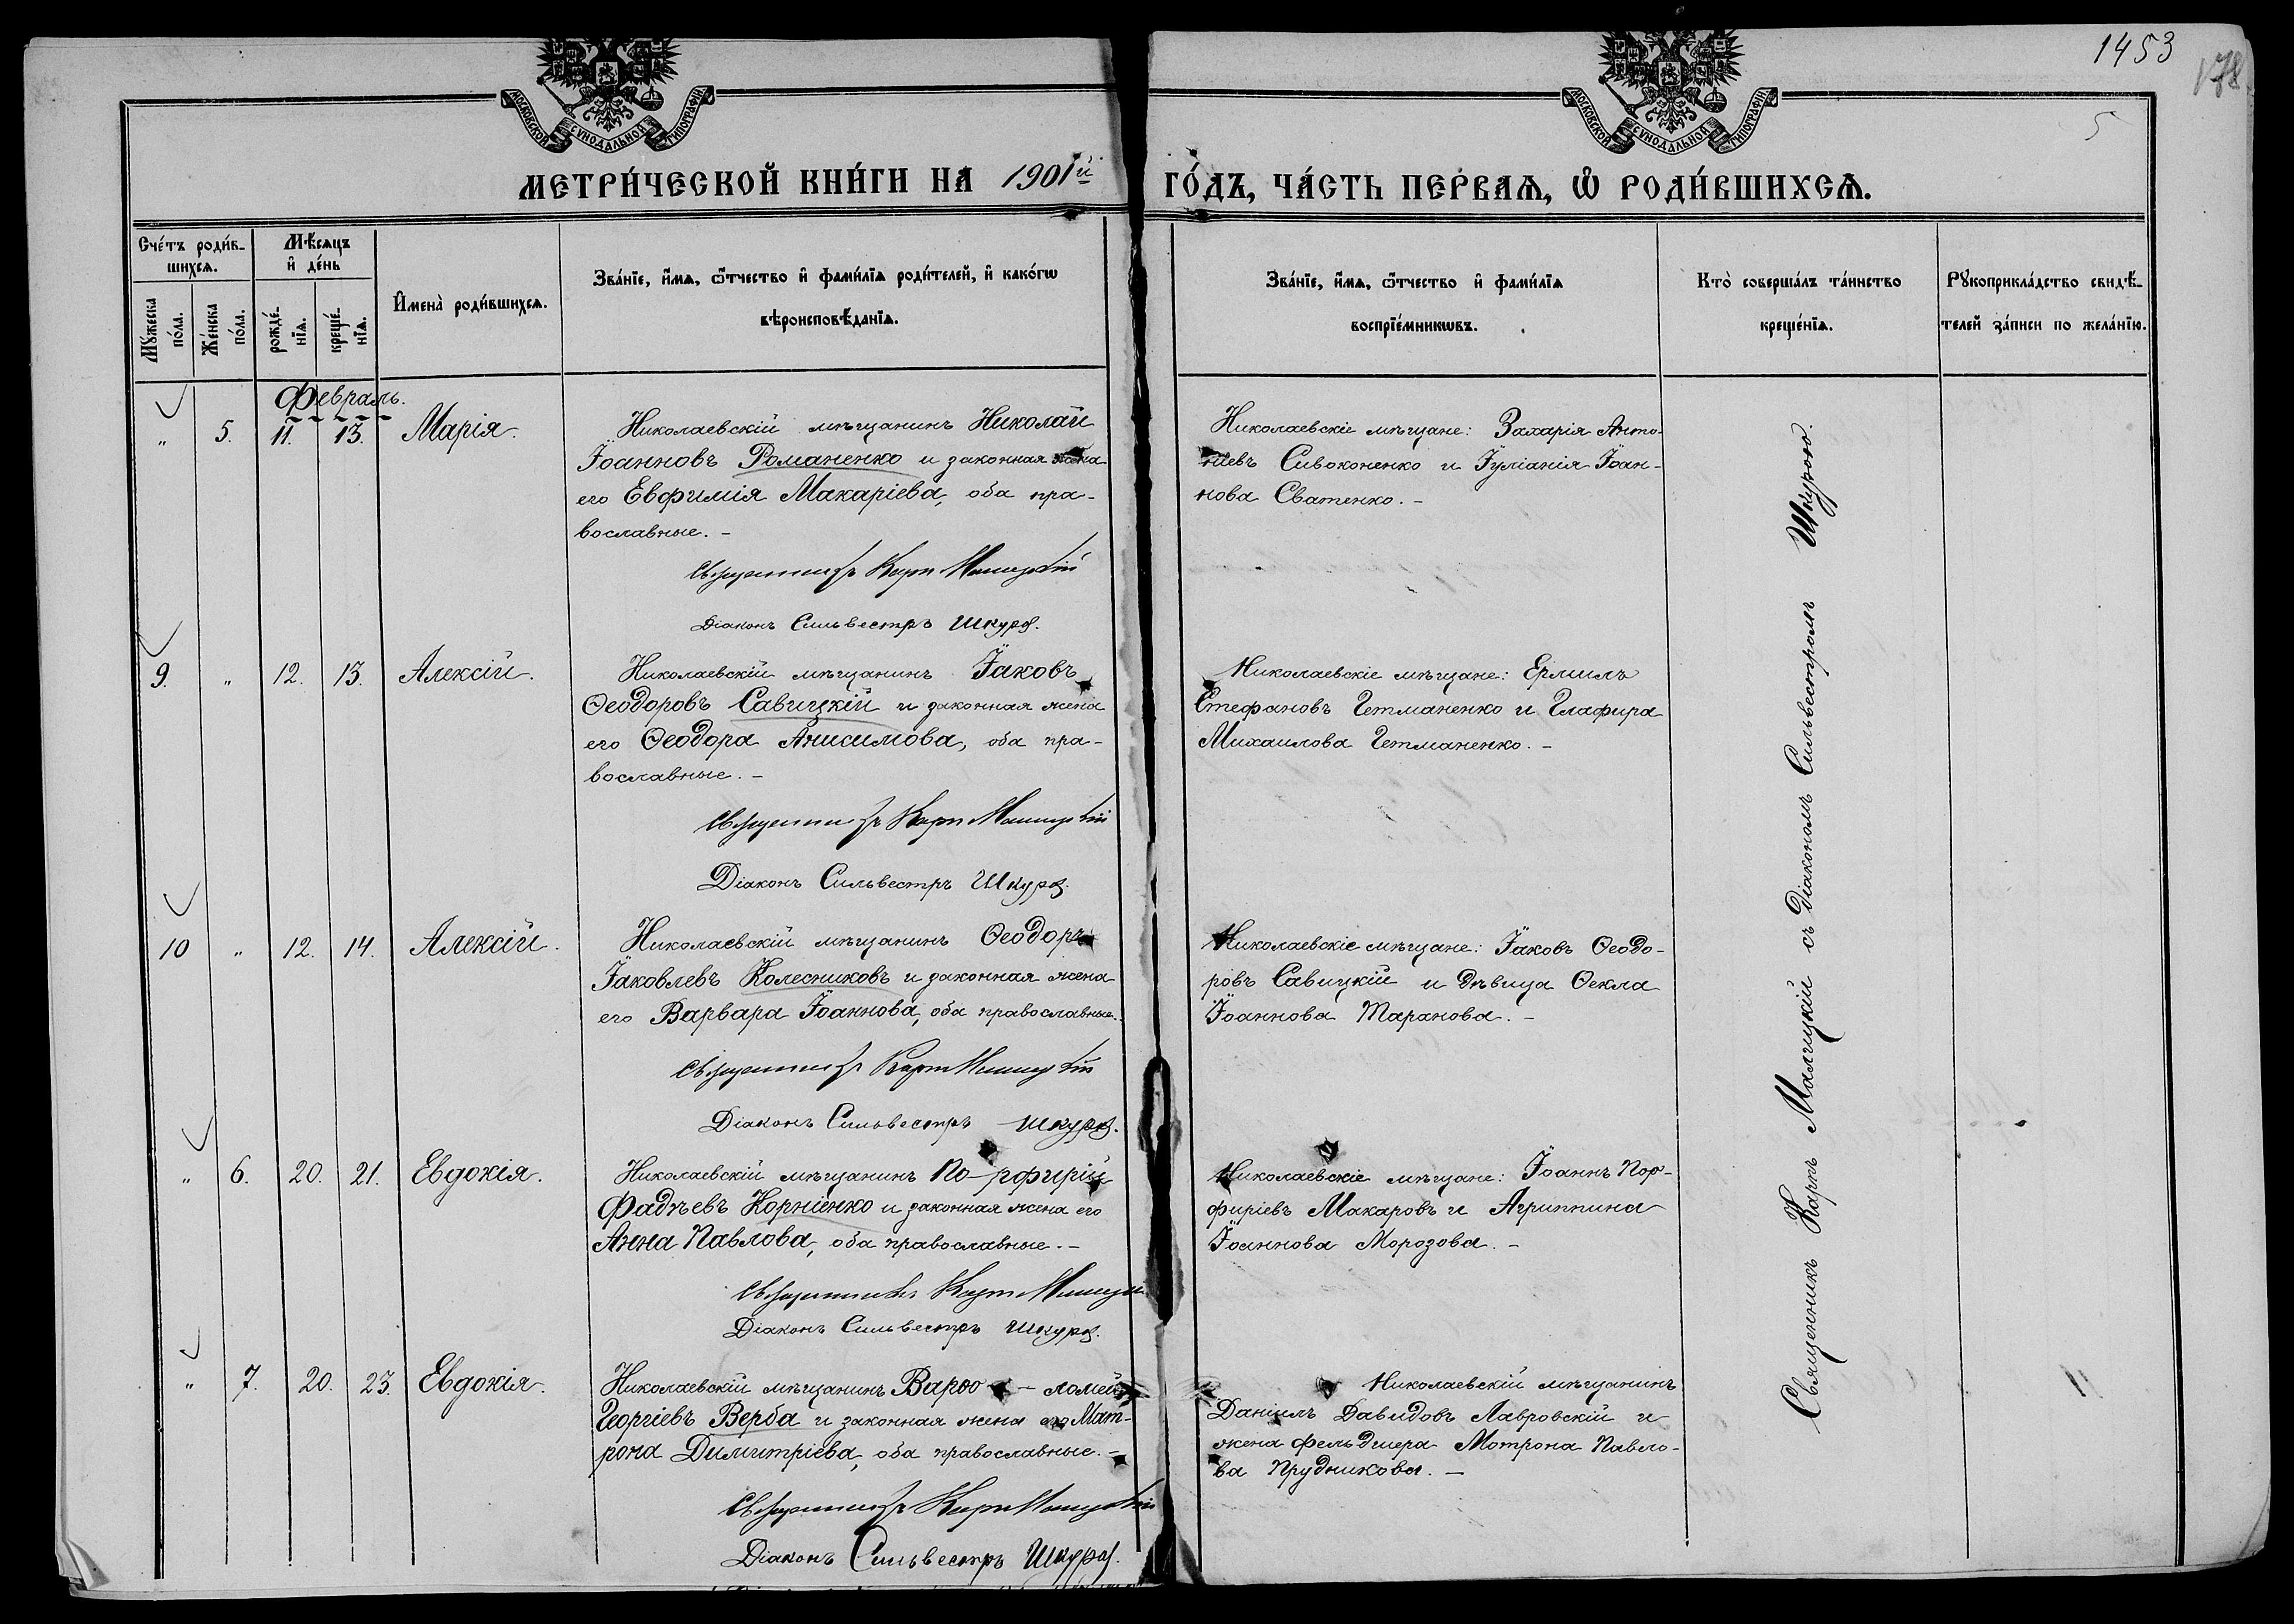 1453
178
5
МОСКОВСКОЙ СѴНОДАЛЬНОЙ ТИПОГРАФІИ
МОСКОВСКОЙ СѴНОДАЛЬНОЙ ТИПОГРАФІИ
МЕТРИ́ЧЕСКОЙ КНИ́ГИ НА 1901й ГО́ДЪ, ЧА́СТЬ ПЕ́РВАѦ, Ѡ РОДИ́ВШИХСѦ.
Сче́тъ роди́в-
шихсѧ.
Мꙋ́жеска
по́ла.
Же́нска
по́ла.
Мѣ́сѧцъ
и҆ де́нь
рожде́-
нїѧ.
креще́-
нїѧ.
И҆мена̀ роди́вшихсѧ.
Зва́нїе, и҆́мѧ, ѻ҆́тчество и҆ фами́лїѧ роди́телей, и҆ како́гѡ
вѣроисповѣ́данїѧ.
Зва́нїе, и҆́мѧ, ѻ҆́тчество и҆ фами́лїѧ
воспрїе́мникѡвъ.
Кто̀ соверша́лъ та́инство
креще́нїѧ.
Рꙋкоприкла́дство свидѣ́-
телей за́писи по жела́нїю.
Февраль.
„ 5. 11. 13. Марія.
Николаевскій мѣщанинъ Николай
Іоанновъ Романенко и законная жена
его Евфимія Макаріева, оба пра-
вославные. –
Священникъ Карп Малицкій
Діаконъ Сильвестръ Шкура.
Николаевскіе мѣщане: Захарія Анто-
ніевъ Сивоконенко и Іуліанія Іоан-
нова Сватенко. –
9. „ 12. 13. Алексій.
Николаевскій мѣщанинъ Іаковъ
Ѳеодоровъ Савицкій и законная жена
его Ѳеодора Анисимова, оба пра-
вославные. –
Священникъ Карп Малицкій
Діаконъ Сильвестръ Шкура.
Николаевскіе мѣщане: Ермилъ
Стефановъ Гетманенко и Глафира
Михаилова Гетманенко. –
10 „ 12. 14. Алексій.
Николаевскій мѣщанинъ Ѳеодоръ
Іаковлевъ Колесниковъ и законная жена
его Варвара Іоаннова, оба православные.
Священникъ Карп Малицкій
Діаконъ Сильвестръ Шкура.
Николаевскіе мѣщане: Іаковъ Ѳеодо-
ровъ Савицкій и дѣвица Ѳекла
Іоаннова Таранова. –
„ 6. 20. 21. Евдокія.
Николаевскій мѣщанинъ По-рфирій
Фадѣевъ Корніенко и законная жена его
Анна Павлова, оба православные. –
Священникъ Карп Малицкій
Діаконъ Сильвестръ Шкура.
Николаевскіе мѣщане: Іоаннъ Пор-
фиріевъ Макаровъ и Агриппина
Іоаннова Морозова. –
„ 7. 20. 23. Евдокія.
Николаевскій мѣщанинъ Варѳо – ломей
Георгіевъ Верба и законная жена его Мат-
рона Димитріева, оба православные. –
Священникъ Карп Малицкій
Діаконъ Сильвестръ Шкура.
Николаевскій мѣщанинъ
Даніилъ Давидовъ Лавровскій и
жена фельдшера Мотрона Павло-
ва Прудникова. –
Священникъ Карпъ Малицкій съ Діакономъ Сильвестромъ Шкурою.